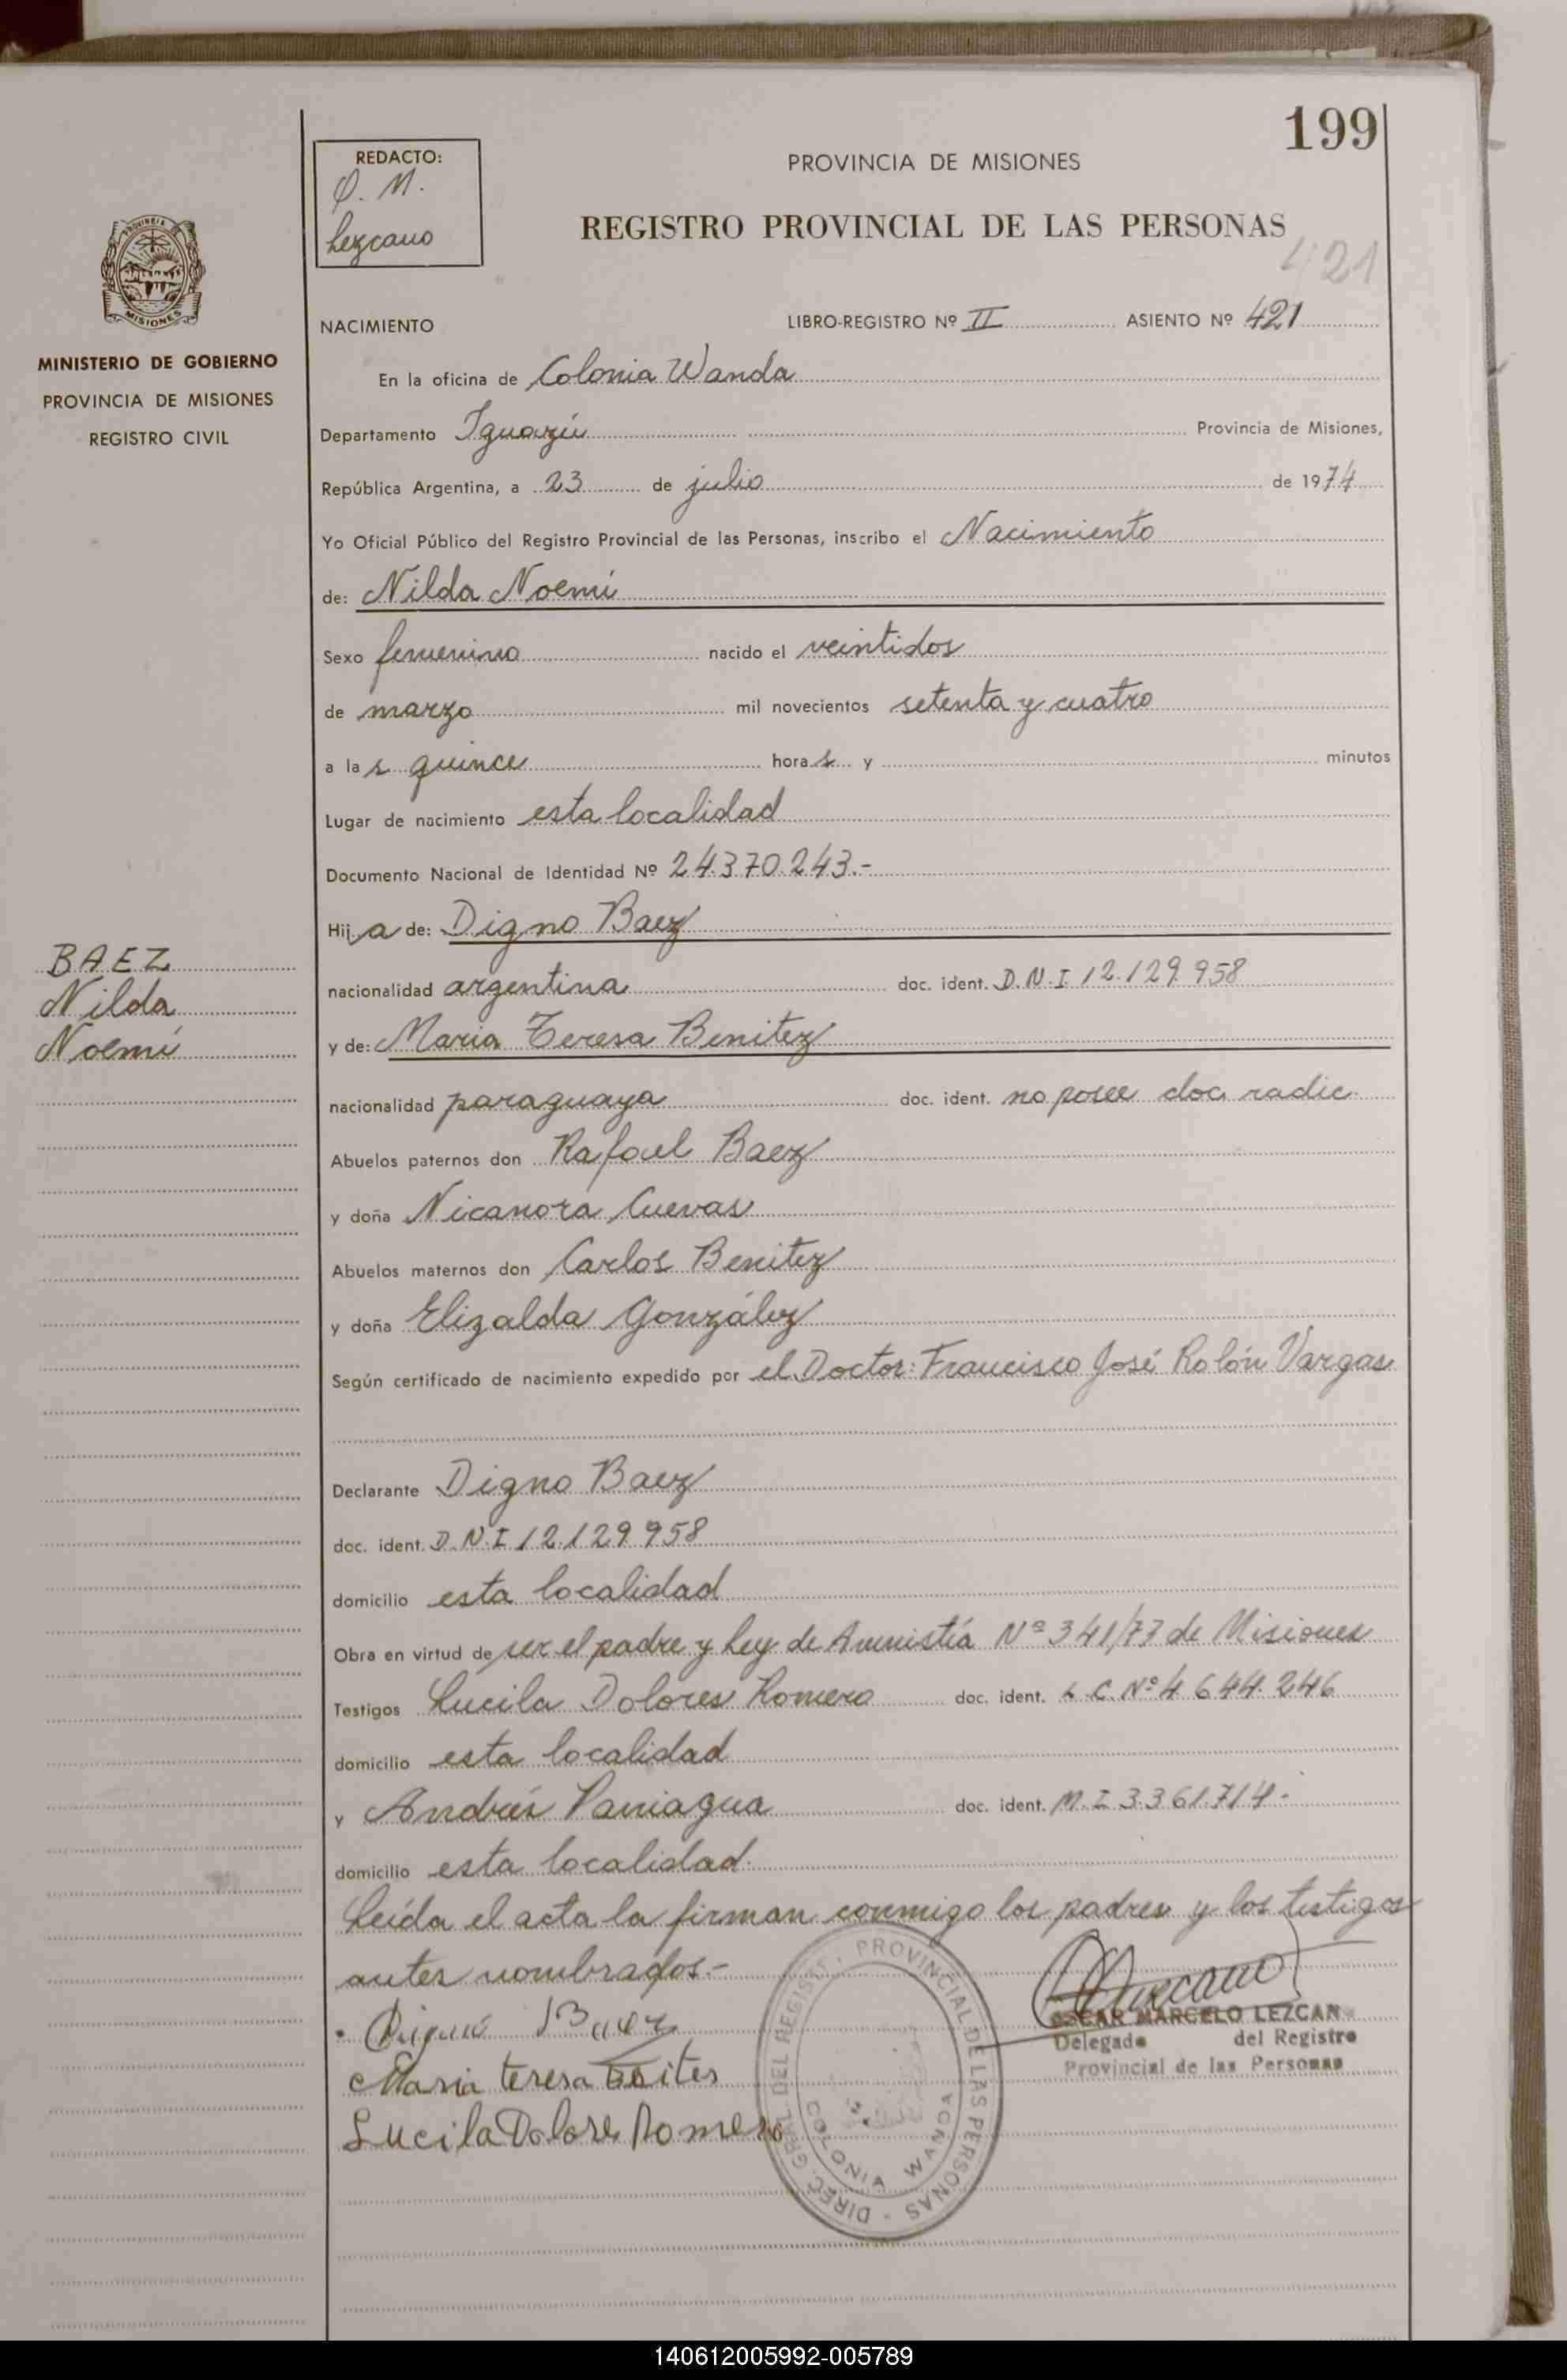 199
REDACTO:
O. M.
Lezcano
PROVINCIA DE MISIONES
REGISTRO PROVINCIAL DE LAS PERSONAS
421
PROVINCIA
MISIONES
MINISTERIO DE GOBIERNO
PROVINCIA DE MISIONES
REGISTRO CIVIL
NACIMIENTO LIBRO-REGISTRO Nº II ASIENTO Nº 421
En la oficina de Colonia Wanda
Departamento Iguazú Provincia de Misiones,
República Argentina, a 23 de julio de 1974
Yo Oficial Público del Registro Provincial de las Personas, inscribo el Nacimiento
de: Nilda Noemí
Sexo femenino nacido el veintidos
de marzo mil novecientos setenta y cuatro
a las quince horas y minutos
Lugar de nacimiento esta localidad
Documento Nacional de Identidad Nº 24.370.243.-
Hija de: Digno Baez
BAEZ
Nilda
Noemí
nacionalidad argentina doc. ident. D.N.I 12.129.958
y de: Maria Teresa Benitez
nacionalidad paraguaya doc. ident. no posee doc. radic.
Abuelos paternos don Rafael Baez
y doña Nicanora Cuevas
Abuelos maternos don Carlos Benitez
y doña Elizalda González
Según certificado de nacimiento expedido por el Doctor: Francisco José Rolón Vargas
Declarante Digno Baez
doc. ident. D.N.I 12.129.958
domicilio esta localidad
Obra en virtud de ser el padre y Ley de Amnistía Nº 341/73 de Misiones
Testigos Lucila Dolores Romero doc. ident. L.C. Nº 4.644.246
domicilio esta localidad
y Andrés Paniagua doc. ident. M.I 3.361.714.-
domicilio esta localidad.
Leída el acta la firman conmigo los padres y los testigos
antes nombrados.-
Baez
Maria teresa
Lucila Dolores Romero
DIREC. GRAL. DEL REGIST. PROVINCIAL DE LAS PERSONAS
COLONIA WANDA
OSCAR MARCELO LEZCANO
Delegado del Registro
Provincial de las Personas
140612005992-005789